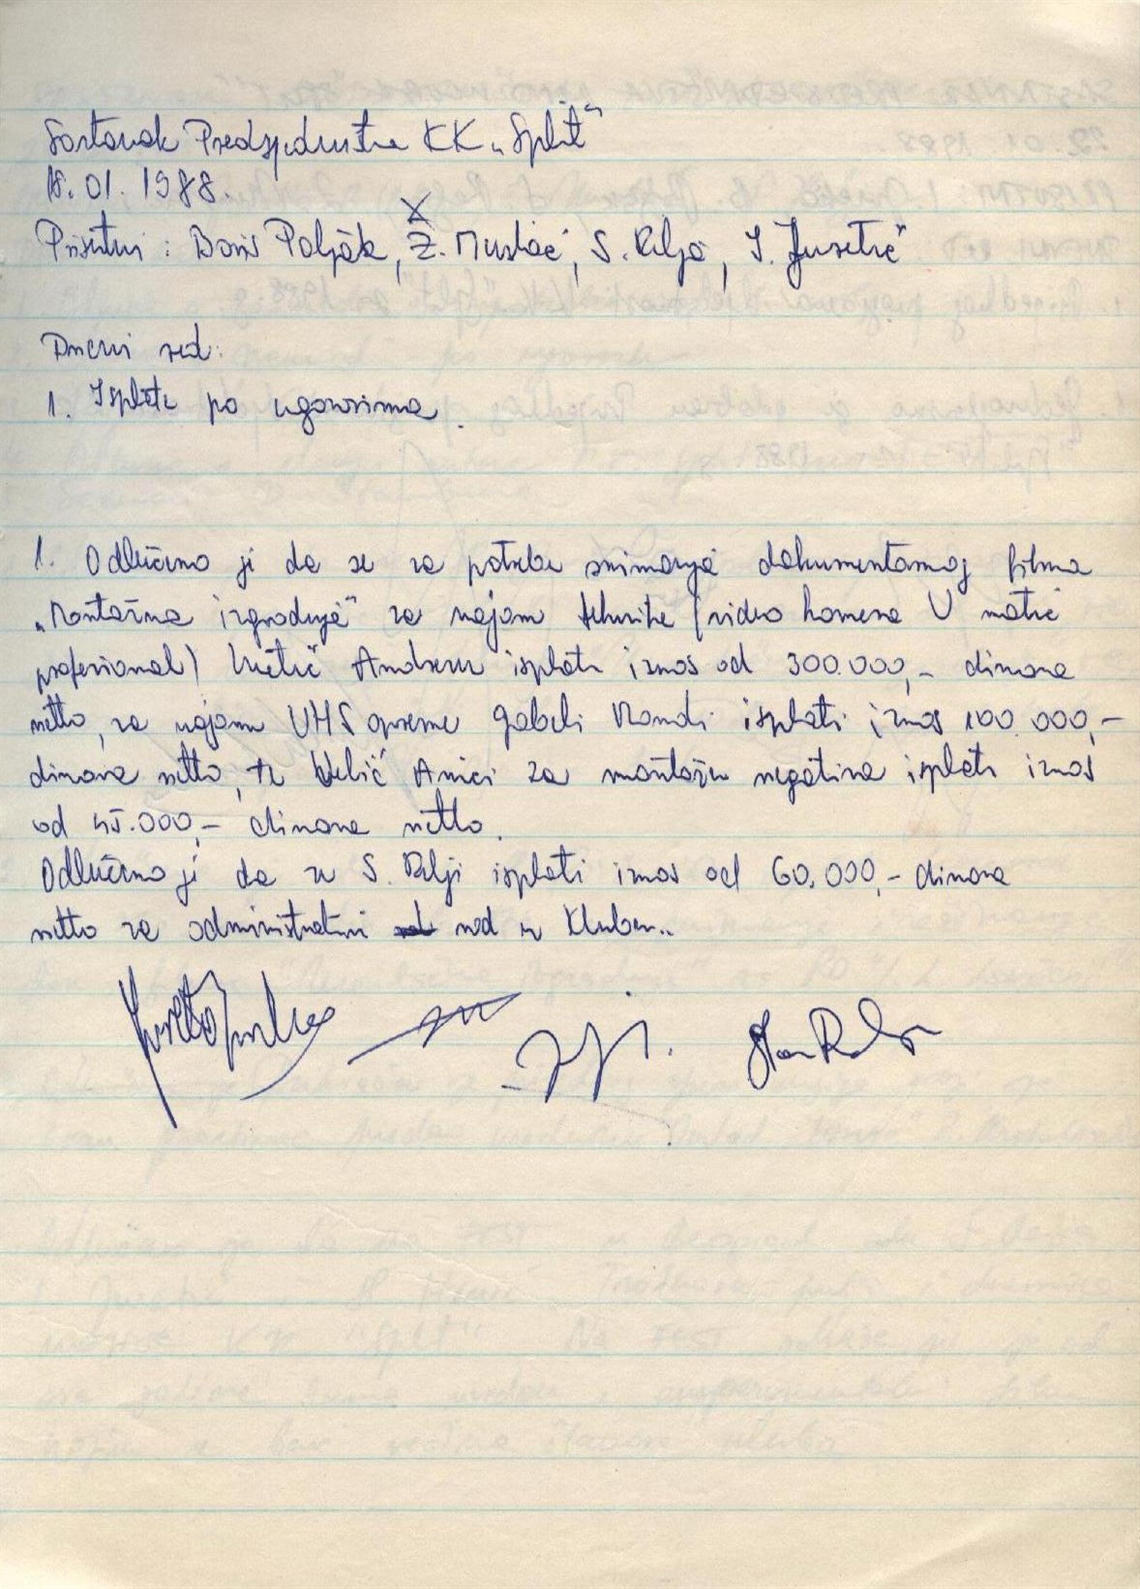 Sastanak Predsjedništva KK „Split"
18.01.1988.
Prisutni: Boris Poljak, Ž. Muslać, S. Relja, I. Juretić
Dnevni red:
1. Isplate po ugovorima.
1. Odlučeno je da se za potrebe snimanja dokumentarnog filma
„Montažna izgradnja" za najam tehnike (video kamera U matic
profesional) Andreu isplati iznos od 300.000,- dinara
netto, za najam VHS opreme Gabeli isplati iznos 100.000,-
dinara netto, te Anici za montažu negativa isplati iznos
od 45.000,- dinara netto.
Odlučeno je da se S. Relji isplati iznos od 60.000,- dinara
netto za administrativni rad u Klubu..